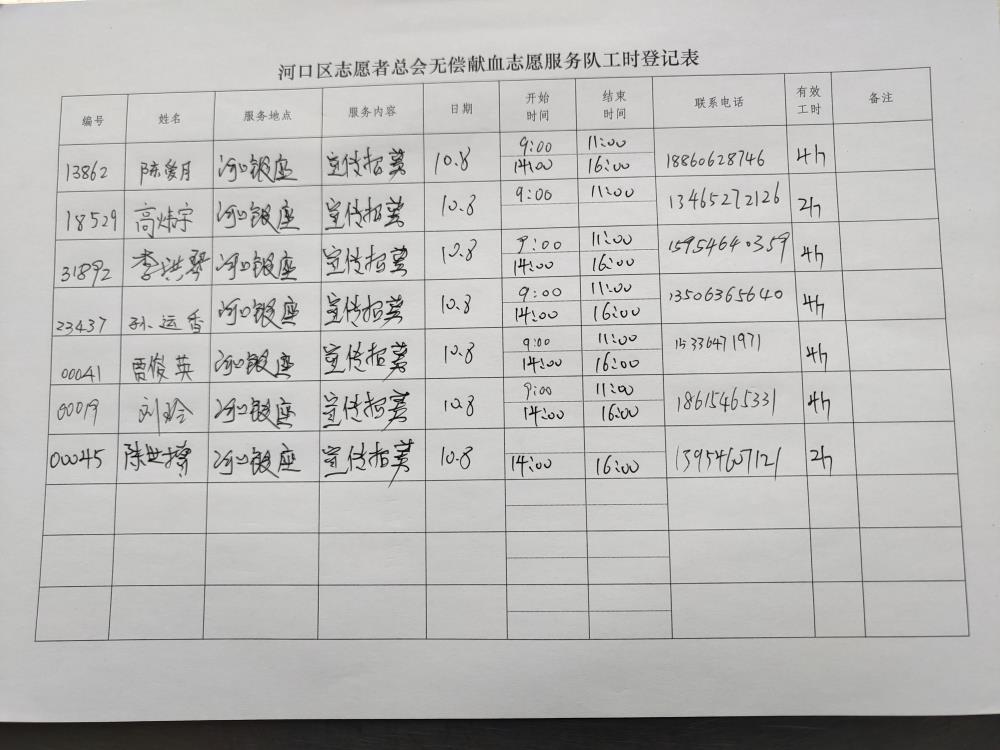 河口区志愿者总会无偿献血志愿服务队工时登记表
编号 姓名 服务地点 服务内容 日期 开始时间 结束时间 联系电话 有效工时 备注
13862 陈爱月 河口银座 宣传招募 10.8 9:00 11:00 14:00 16:00 18860628746 4h
18529 高炜宇 河口银座 宣传招募 10.8 9:00 11:00 13465272126 2h
31892 李洪琴 河口银座 宣传招募 10.8 9:00 11:00 14:00 16:00 15954640359 4h
23437 孙运香 河口银座 宣传招募 10.8 9:00 11:00 14:00 16:00 13506365640 4h
00041 贾俊英 河口银座 宣传招募 10.8 9:00 11:00 14:00 16:00 15336471971 4h
00019 刘玲 河口银座 宣传招募 10.8 9:00 11:00 14:00 16:00 18615465331 4h
00045 河口银座 宣传招募 10.8 14:00 16:00 13954607121 2h